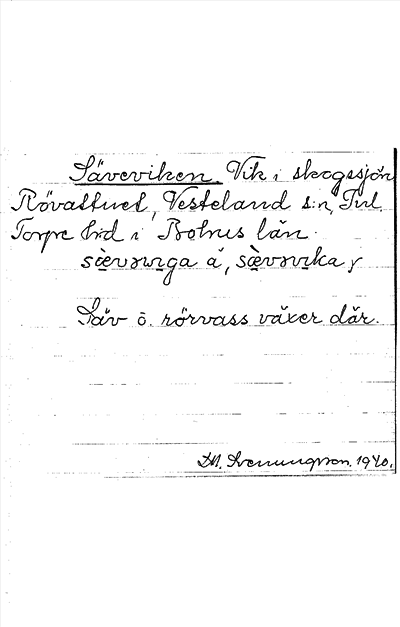 Säveviken. Vik i skogssjön
Rövattnet, Vesteland s:n, Inl.
Torpe hrd i Bohus län.
sä̀vəvı̨ga ä, sä̀vəvı̨ka y
Säv o. rörvass växer där.
M. Svenungsson. 1940.